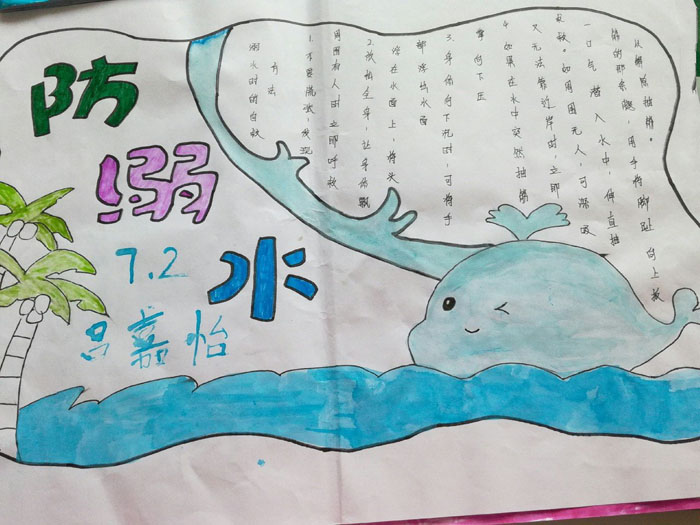 防溺水
7.2
吕嘉怡
溺水时的自救
方法
1.不要慌张,发现
周围有人时立即呼救
2.放松全身,让身体飘
浮在水面上,将头
部浮出水面
3.身体向下沉时,可将手
掌向下压
4.如果在水中突然抽筋
又无法靠近岸时,立即
求救。如周围无人,可深吸
一口气潜入水中,伸直抽
筋的那条腿,用手将脚趾向上扳
以解除抽筋。